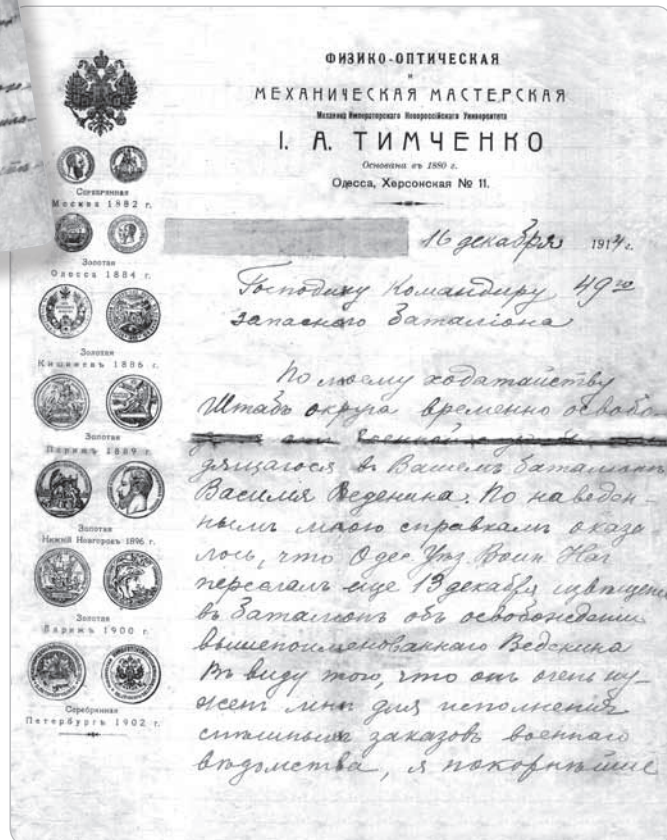 ФИЗИКО-ОПТИЧЕСКАЯ
и
МЕХАНИЧЕСКАЯ МАСТЕРСКАЯ
Механика Императорскаго Новороссійскаго Университета
І. А. ТИМЧЕНКО
Основана въ 1880 г.
Одесса, Херсонская № 11.
16 декабря 1914 г.
Серебрянная
Москва 1882 г.
Золотая
Одесса 1884 г.
Золотая
Кишиневъ 1886 г.
Золотая
Парижъ 1889 г.
Золотая
Нижній Новгородъ 1896 г.
Золотая
Парижъ 1900 г.
Серебрянная
Петербургъ 1902 г.
Господину Командиру 49го
запаснаго баталіона
По моему ходатайству
Штабъ округа временно освобо
дящагося въ Вашемъ баталіонѣ
Василія Веденина. По наведен-
нымъ мною справкамъ оказа
лось, что Одес. Уѣз. Воин. Нач
переслалъ еще 13 декабря
въ баталіонъ объ освобожденіи
вышепоименованнаго Веденина
Въ виду того, что онъ очень ну-
женъ мнѣ для исполненія
спѣшныхъ заказовъ военнаго
вѣдомства, я покорнѣйше